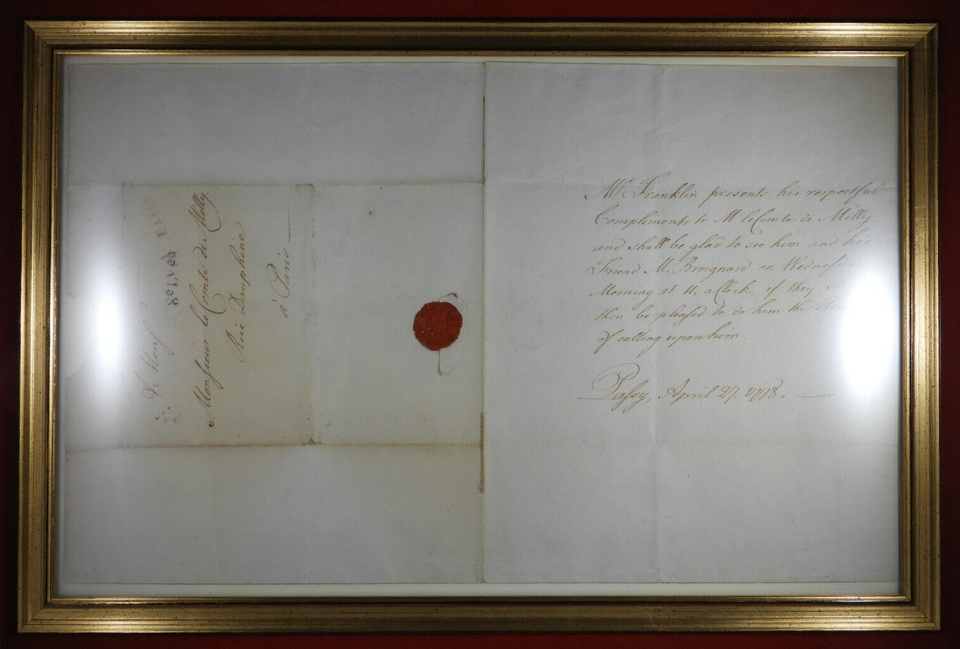 Mr. Franklin presents his respectful
Complements to M. le Comte de Milly
and shall be glad to see him and his
Friend M. Brognard on Wednes
Morning at 11. a Clock, if they
then be pleased to do him the
of calling upon him.
Passy, April 27. 1778.
Monsieur le Comte de Milly
Rue Dauphine
à Paris